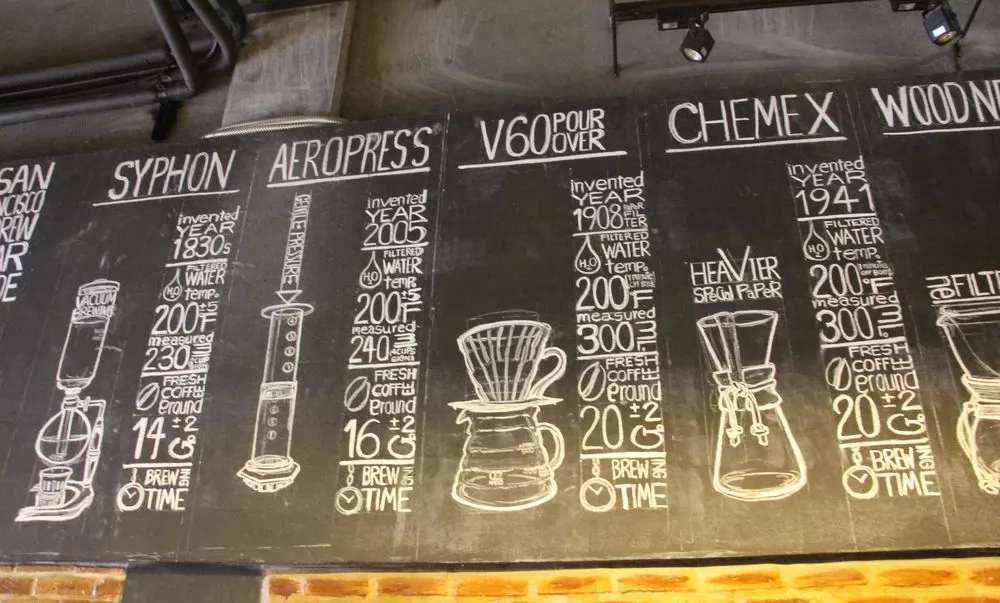 SAN
NCISCO
REW
AR
DE
SYPHON
VACUUM
BREWING
invented
YEAR
1830s
FILTERED
H2O WATER
temp.
200°F ±5
measured
230 ML
FRESH
COFFEE
ground
14 ±2 G.
BREWING
TIME
AEROPRESS
GENTLE PRESSURE
4
3
2
1
invented
YEAR
2005
FILTERED
H2O WATER
temp.
200°F ±5
measured
240 ML
FRESH
COFFEE
ground
16 ±2 G.
BREWING
TIME
V60 POUR
OVER
invented
YEAR
1908 PAPER
FILTER
FILTERED
H2O WATER
temp.
200°F 1 minute OFF BOIL
measured
300 ML
FRESH
COFFEE
ground
20 ±2 G.
BREWING
TIME
CHEMEX
HEAVIER
SPECIAL PAPER
invented
YEAR
1941
FILTERED
H2O WATER
temp.
200°F OFF BOIL
measured
300 ML
FRESH
COFFEE
ground
20 ±2 G.
BREWING
TIME
WOODN
FILT